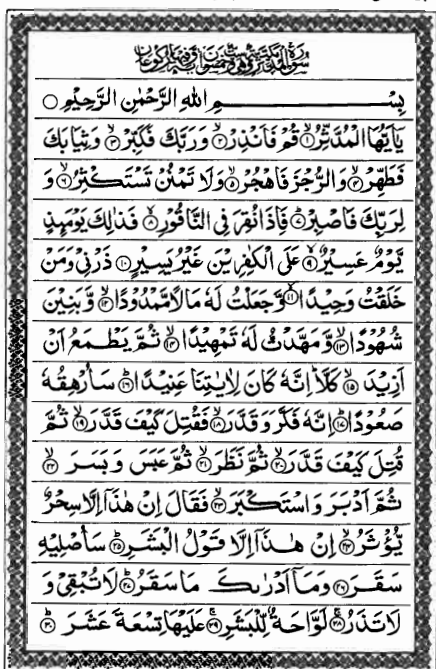 سُوْرَةُ الْمُدَّثِّرِ مَكِّيَّةٌ وَّهِيَ سِتٌّ وَّخَمْسُوْنَ اٰيَةً وَّفِيْهَا رُكُوْعَانِ
بِسْمِ اللهِ الرَّحْمٰنِ الرَّحِيْمِ ○
يٰۤاَيُّهَا الْمُدَّثِّرُ ۙ﴿۱﴾ قُمْ فَاَنْذِرْ ۪ۙ﴿۲﴾ وَرَبَّكَ فَكَبِّرْ ۪ۙ﴿۳﴾ وَثِيَابَكَ
فَطَهِّرْ ۪ۙ﴿۴﴾ وَالرُّجْزَ فَاهْجُرْ ۪ۙ﴿۵﴾ وَلَا تَمْنُنْ تَسْتَكْثِرُ ۪ۙ﴿۶﴾ وَ
لِرَبِّكَ فَاصْبِرْ ؕ﴿۷﴾ فَاِذَا نُقِرَ فِى النَّاقُوْرِ ۙ﴿۸﴾ فَذٰلِكَ يَوْمَىِٕذٍ
يَّوْمٌ عَسِيْرٌ ۙ﴿۹﴾ عَلَى الْكٰفِرِيْنَ غَيْرُ يَسِيْرٍ ﴿۱۰﴾ ذَرْنِىْ وَمَنْ
خَلَقْتُ وَحِيْدًا ۙ﴿۱۱﴾ وَّجَعَلْتُ لَهٗ مَالًا مَّمْدُوْدًا ۙ﴿۱۲﴾ وَّبَنِيْنَ
شُهُوْدًا ۙ﴿۱۳﴾ وَّمَهَّدْتُّ لَهٗ تَمْهِيْدًا ۙ﴿۱۴﴾ ثُمَّ يَطْمَعُ اَنْ
اَزِيْدَ ۙ﴿۱۵﴾ كَلَّا ؕ اِنَّهٗ كَانَ لِاٰيٰتِنَا عَنِيْدًا ؕ﴿۱۶﴾ سَاُرْهِقُهٗ
صَعُوْدًا ؕ﴿۱۷﴾ اِنَّهٗ فَكَّرَ وَقَدَّرَ ۙ﴿۱۸﴾ فَقُتِلَ كَيْفَ قَدَّرَ ۙ﴿۱۹﴾ ثُمَّ
قُتِلَ كَيْفَ قَدَّرَ ۙ﴿۲۰﴾ ثُمَّ نَظَرَ ۙ﴿۲۱﴾ ثُمَّ عَبَسَ وَبَسَرَ ۙ﴿۲۲﴾
ثُمَّ اَدْبَرَ وَاسْتَكْبَرَ ۙ﴿۲۳﴾ فَقَالَ اِنْ هٰذَاۤ اِلَّا سِحْرٌ
يُّؤْثَرُ ۙ﴿۲۴﴾ اِنْ هٰذَاۤ اِلَّا قَوْلُ الْبَشَرِ ؕ﴿۲۵﴾ سَاُصْلِيْهِ
سَقَرَ ﴿۲۶﴾ وَمَاۤ اَدْرٰىكَ مَا سَقَرُ ؕ﴿۲۷﴾ لَا تُبْقِىْ وَ
لَا تَذَرُ ۚ﴿۲۸﴾ لَوَّاحَةٌ لِّلْبَشَرِ ۚ﴿۲۹﴾ عَلَيْهَا تِسْعَةَ عَشَرَ ؕ﴿۳۰﴾